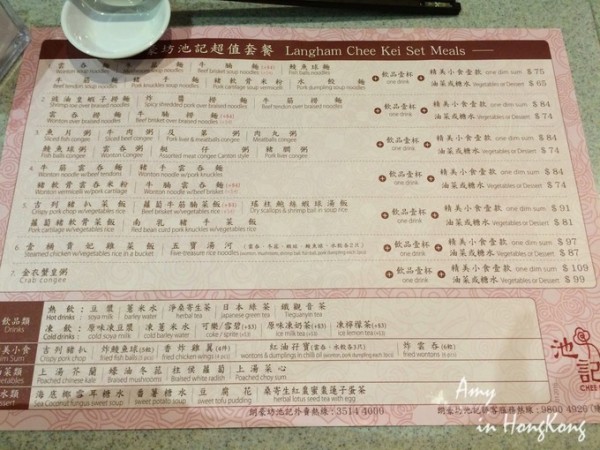 豪坊池記超值套餐 Langham Chee Kei Set Meals
雲吞麵 牛筋麵 牛腩麵(+$4) 鯪魚球麵
Wonton soup noodles Beef tendon soup noodles Beef brisket soup noodles Fish balls noodles
豬軟骨米粉 水餃麵
Pork knuckles noodles Pork cartilage soup vermicelli Pork dumpling soup noodles
飲品壹杯 one drink
精美小食壹款 one dim sum $ 75
油菜或糖水 Vegetables or Dessert $ 65
2. 豉油皇蝦子撈麵 炸醬撈麵 牛筋撈麵
Shrimp roe over braised noodles Spicy shredded pork over braised noodles Beef tendon over braised noodles
雲吞撈麵 牛腩撈麵(+$4)
Wonton over braised noodles Beef brisket over braised noodles
飲品壹杯 one drink
精美小食壹款 one dim sum $ 84
油菜或糖水 Vegetables or Dessert $ 74
3. 魚片粥 牛肉粥 及第粥 肉丸粥
Sliced fish congee Sliced beef congee Pork liver & meatballs congee Meatballs congee
鯪魚球粥 雲吞粥 艇仔粥 豬膶粥
Fish balls congee Wonton congee Assorted meat congee Canton style Pork liver congee
飲品壹杯 one drink
精美小食壹款 one dim sum $ 84
油菜或糖水 Vegetables or Dessert $ 74
4. 牛筋雲吞麵 豬手雲吞麵
Wonton noodle w/beef tendon Wonton noodle w/pork knuckles
豬軟骨雲吞米粉 牛腩雲吞麵(+$4)
Wonton vermicelli w/pork cartilage Wonton noodle w/beef brisket
飲品壹杯 one drink
精美小食壹款 one dim sum $ 84
油菜或糖水 Vegetables or Dessert $ 74
5. 吉列豬扒菜飯 蘿蔔牛筋腩菜飯(+$3) 瑤柱鹹蛋蝦球湯飯
Crispy pork chop w/vegetables rice Beef brisket w/vegetables rice Dry scallops & shrimp ball in soup rice
蘿蔔豬軟骨菜飯 南乳豬手菜飯
Pork cartilage w/vegetables rice Pork knuckles w/vegetables rice
飲品壹杯 one drink
精美小食壹款 one dim sum $ 91
油菜或糖水 Vegetables or Dessert $ 81
6. 壹桶貴妃雞菜飯 五寶湯河
Steamed chicken w/vegetables rice in a bucket Five-treasure rice noodles
飲品壹杯 one drink
精美小食壹款 one dim sum $ 97
油菜或糖水 Vegetables or Dessert $ 87
7. 金衣蟹皇粥
Crab congee
飲品壹杯 one drink
精美小食壹款 one dim sum $ 109
油菜或糖水 Vegetables or Dessert $ 99
飲品類 Drinks
熱飲: 豆漿 薏米水 淨桑寄生茶 日本綠茶 鐵觀音茶
Hot drinks soya milk barley water herbal tea japanese green tea Tieguanyin tea
凍飲: 原味凍豆漿 凍薏米水 可樂/雪碧(+$3) 原味凍奶茶(+$3) 凍檸檬茶(+$3)
Cold drinks cold soya milk cold barley water coke / sprite ice milk tea ice lemon tea
美小食
吉列豬扒 炸鯪魚球 香炸雞翼 紅油孖寶 炸雲吞
Crispy pork chop Fried fish balls Fried chicken wings wontons & dumplings in chilli oil fried wontons
油菜類 Vegetables
上湯芥蘭 蠔油冬菇 柱侯蘿蔔 上湯菜心
Poached chinese kale Braised mushroom Braised white radish Poached choy sum
糖水類 Dessert
海底椰雪耳糖水 番薯糖水 豆腐花 桑寄生紅棗蜜棗蓮子蛋茶
Sea Coconut fungus sweet soup sweet potato soup sweet tofu pudding herbal lotus seed tea with egg
朗豪坊池記外賣熱線: 3514 4000
池記
CHEE
Amy
in HongKong